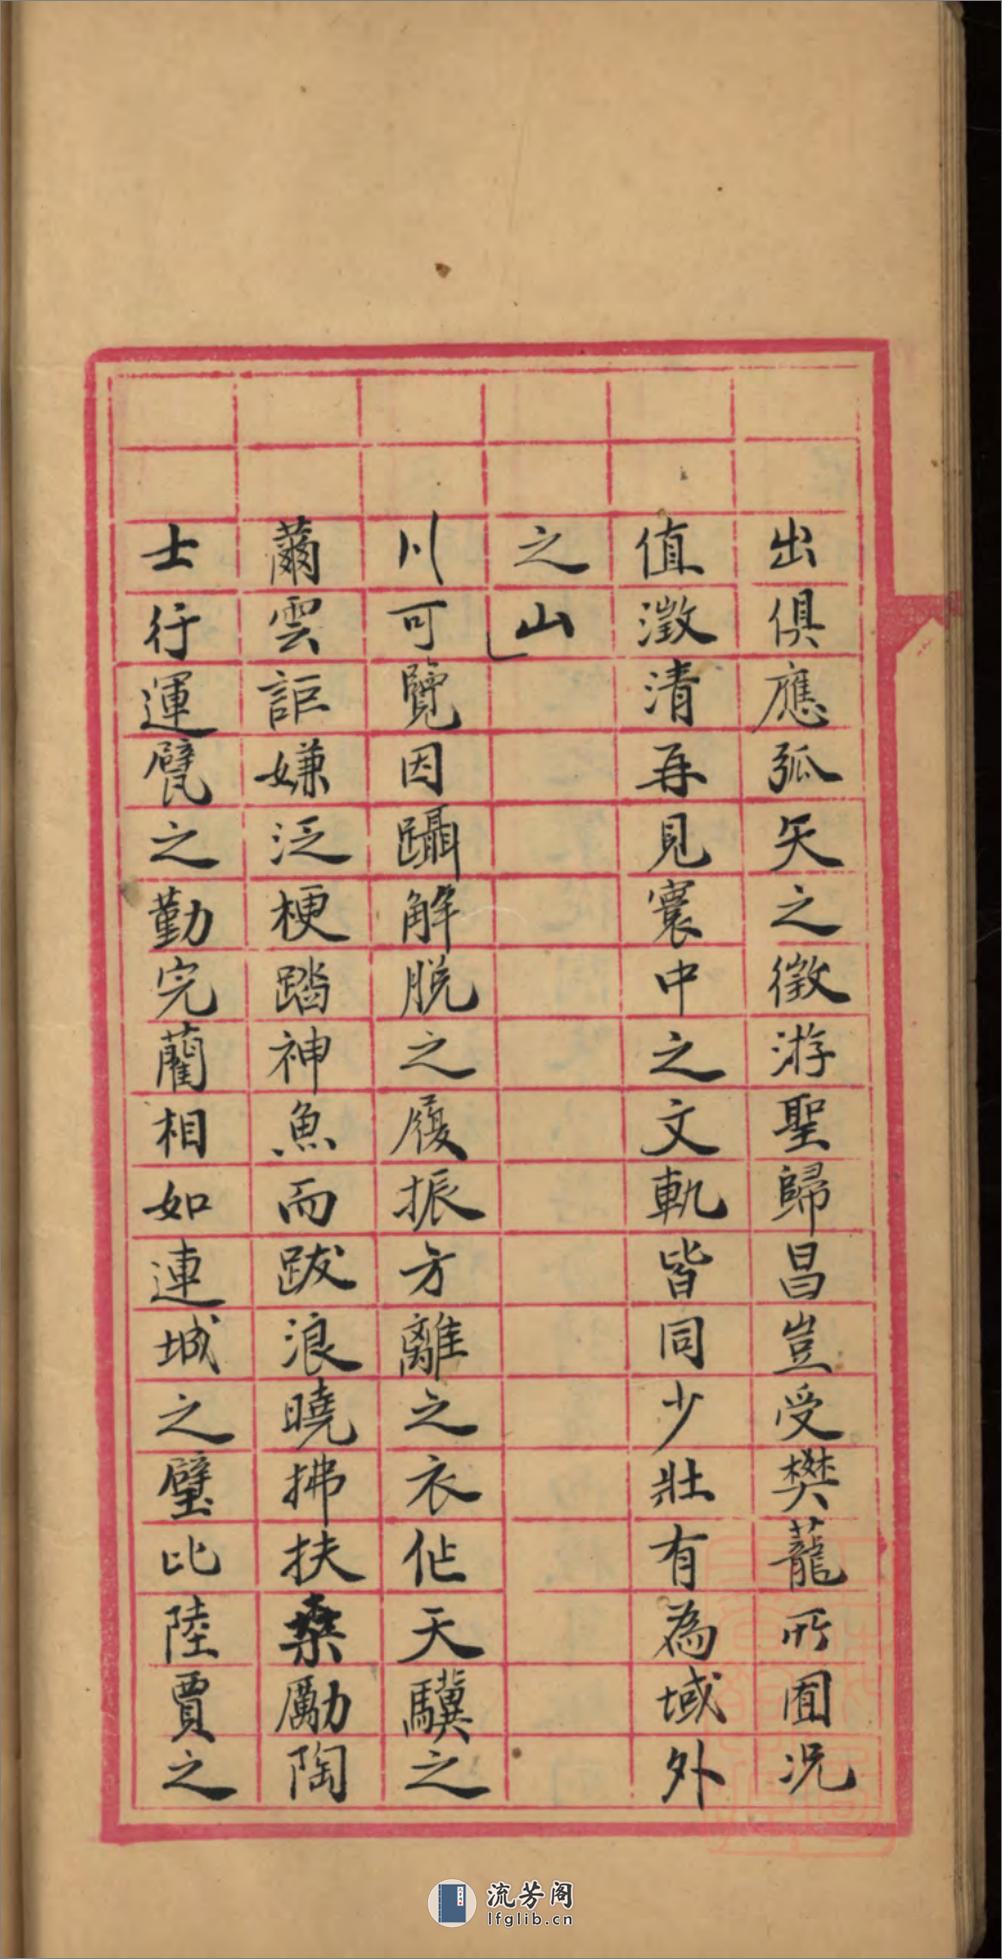 出俱應弧矢之徵游聖歸昌豈受樊蘢所囿况
值澂清再見寰中之文軌皆同少壯有為域外
之山
川可覽因躡解脱之履振方離之衣佗天驥之
薾雲詎嫌泛梗踏神魚而跋浪曉拂扶桑勵陶
士行運甓之勤完藺相如連城之璧比陸賈之
流芳阁
lfglib.cn